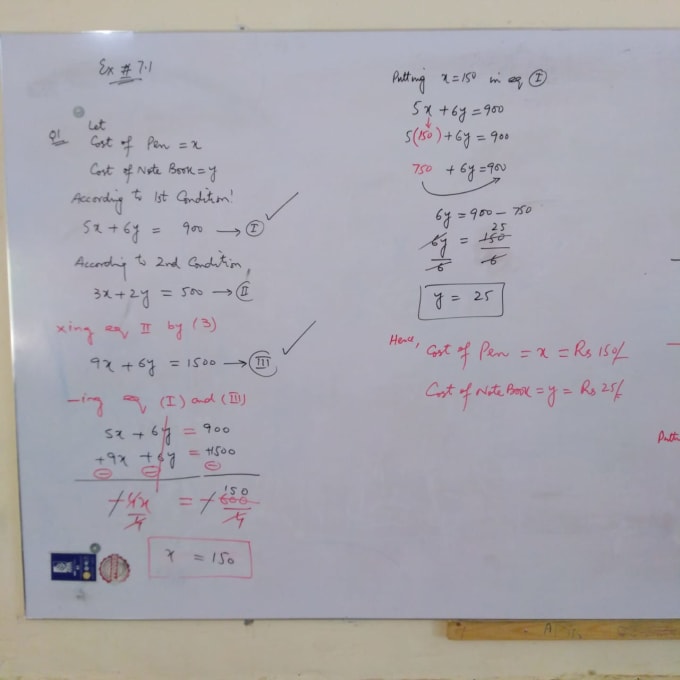 Ex # 7.1
Q1 Let
Cost of Pen = x
Cost of Note Book = y
According to 1st Condition!
5x + 6y = 900 → I
According to 2nd Condition,
3x + 2y = 500 → II
xing eq II by (3)
9x + 6y = 1500 → III
-ing eq (I) and (III)
5x + 6y = 900
+9x +6y = +1500
⊖ ⊖ ⊖
150
-4x = -600
4 4
x = 150
Putting x = 150 in eq I
5x + 6y = 900
5(150) + 6y = 900
750 + 6y = 900
6y = 900 - 750
25
6y = 150
6 6
y = 25
Hence, Cost of Pen = x = Rs 150/-
Cost of Note Book = y = Rs 25/-